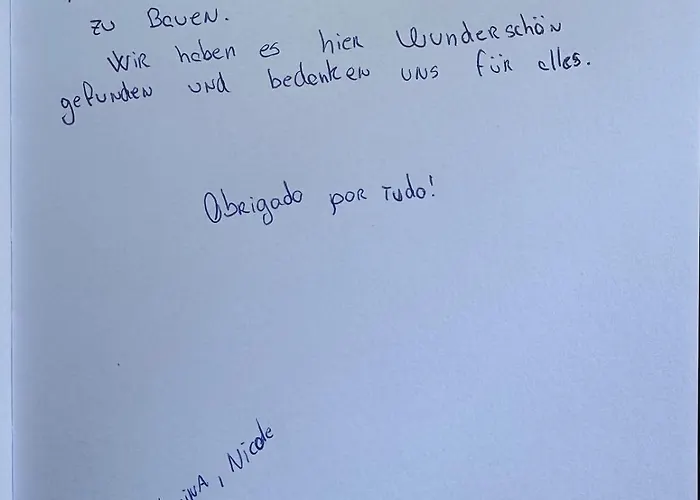 zu Bauen.
Wir haben es hier wunderschön
gefunden und bedanken uns für alles.
Obrigado por tudo!
, Nicole